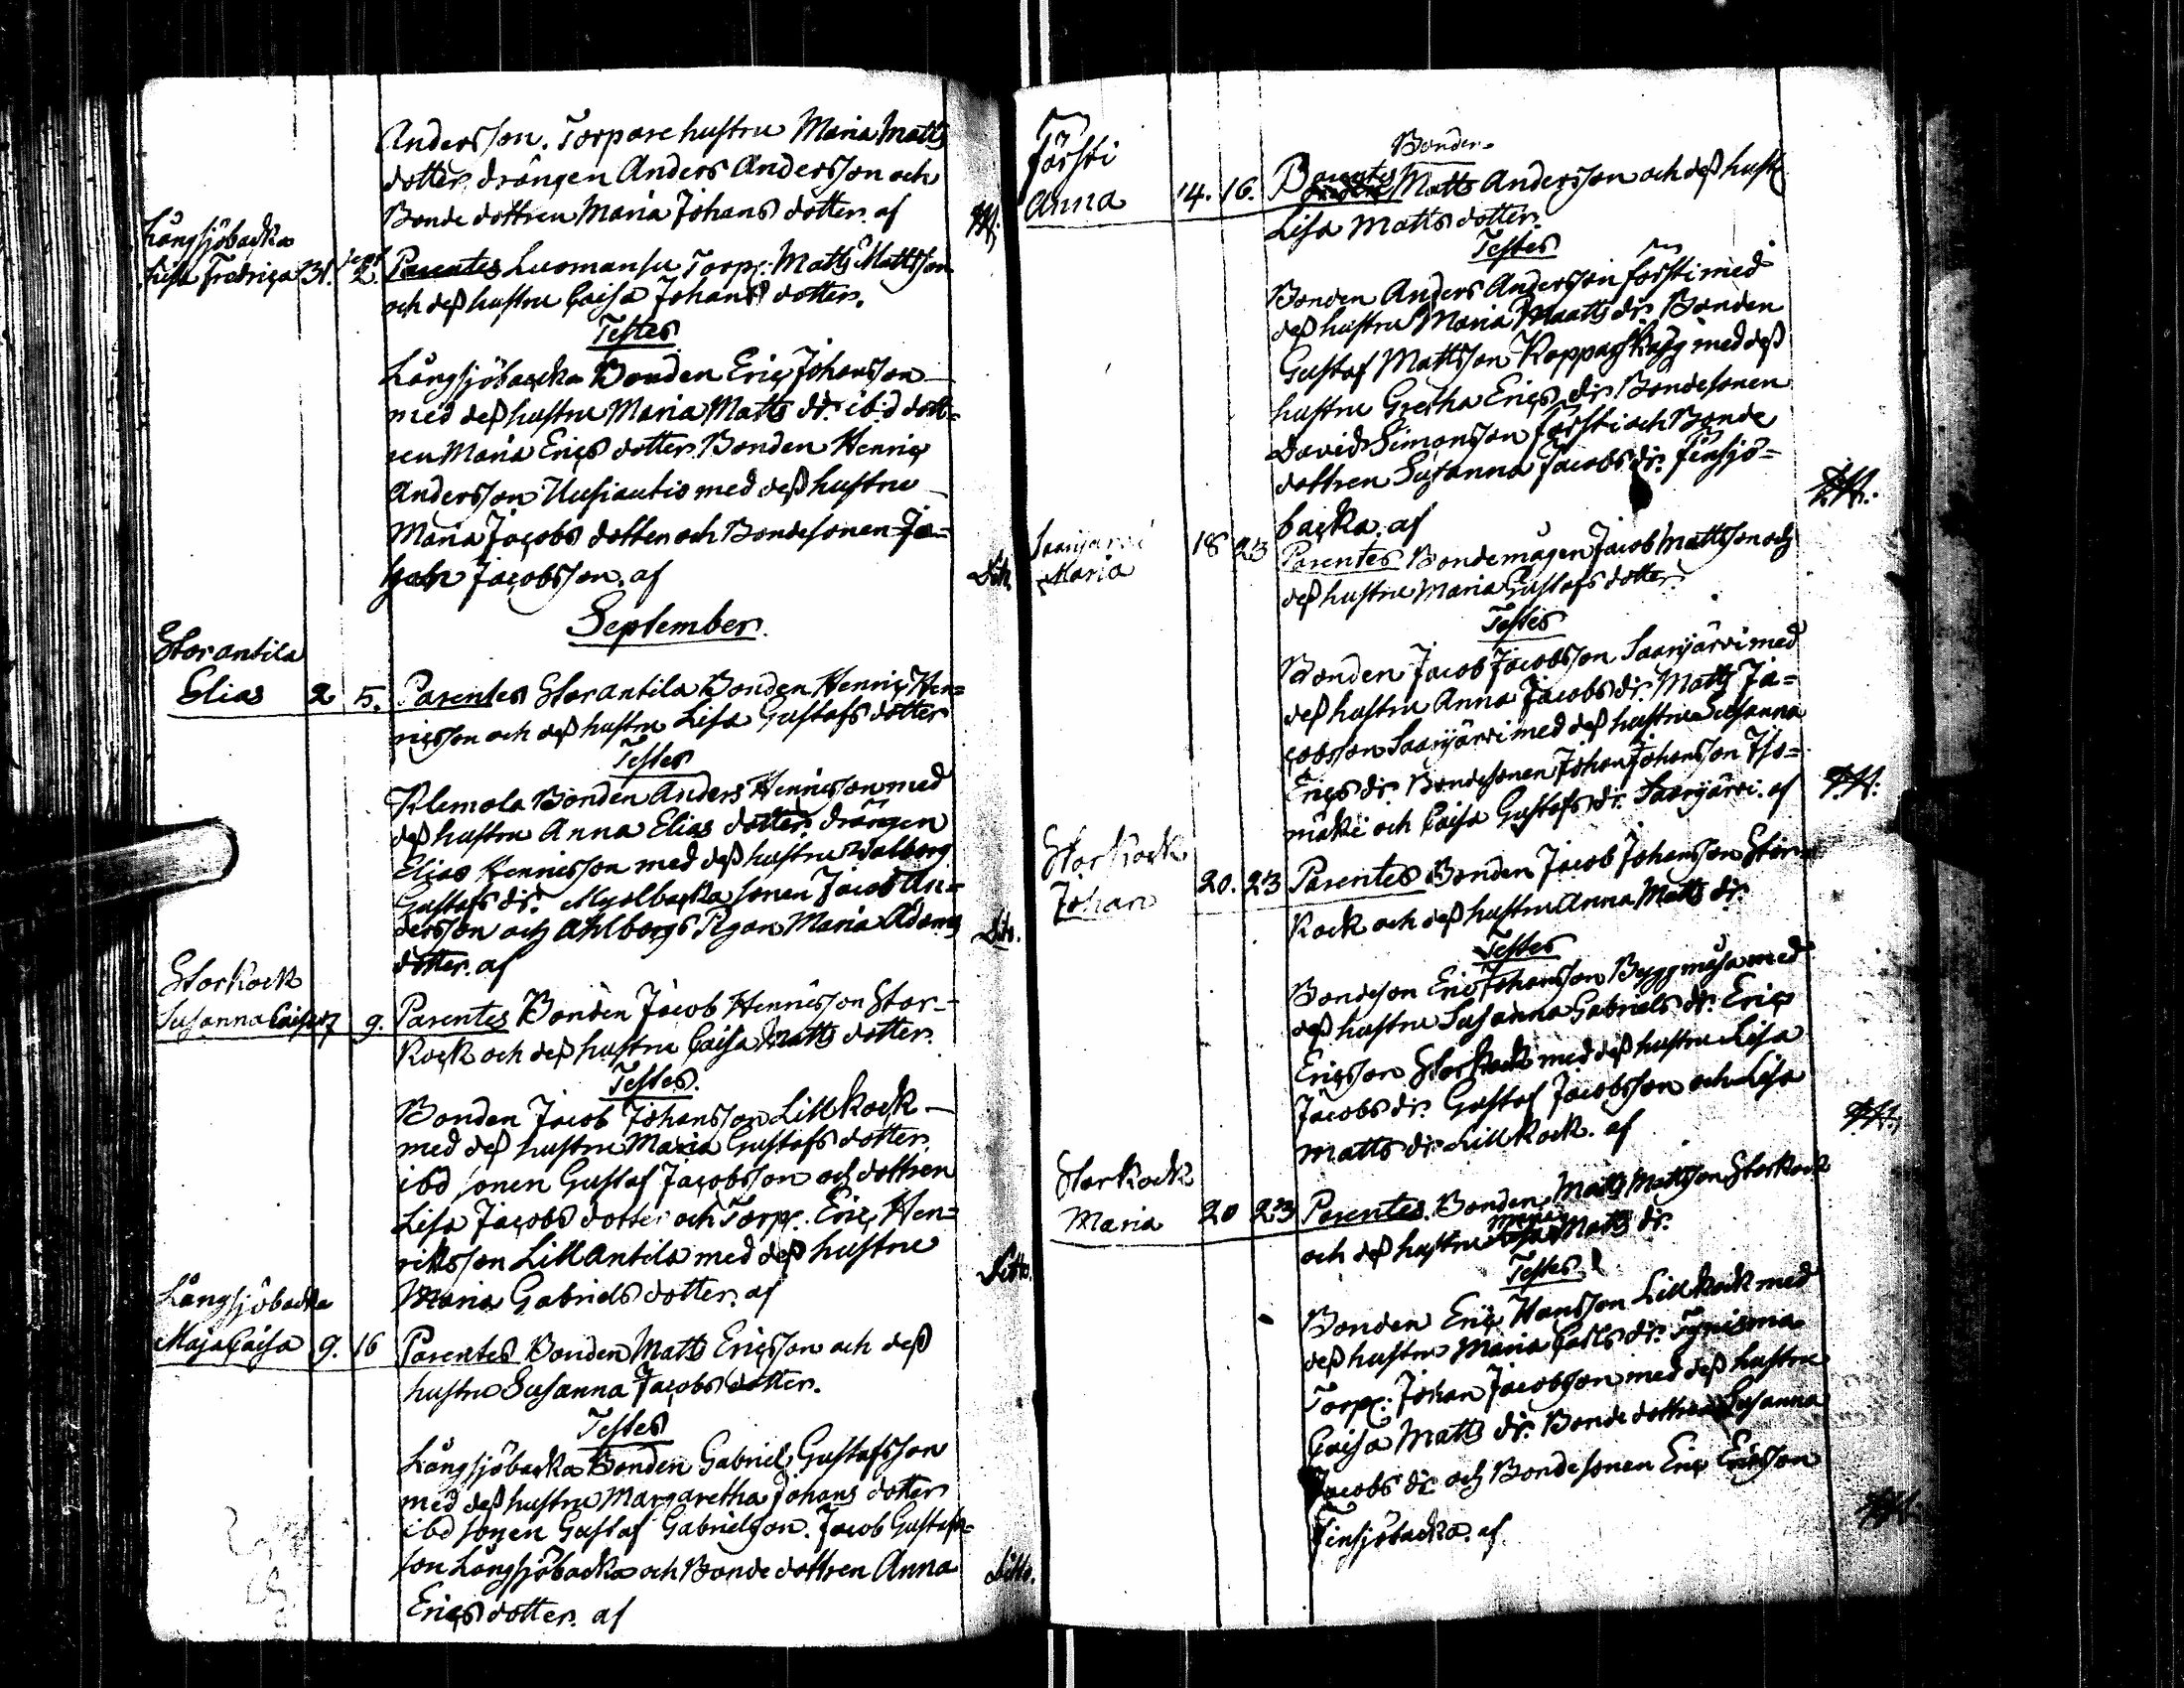 Andersson. Torpare hustru Maria Matts
dotter. drängen Anders Andersson och
Bonde dottren Maria Johans dotter. af
Långsjöbacka
Lisa Fredrica 31. sept 2. Parentes Luomansu Torp. Matts Mattsson
och dess hustru Caisa Johans dotter.
Testes
Långsjöbacka Bonden Eric Johansson
med dess hustru Maria Matts dr. ibd dott=
ren Maria Erics dotter. Bonden Henric
Andersson Uusiautio med dess hustru
Maria Jacobs dotter och Bondesonen
Jacobsson. af Dito.
September.
Storantila
Elias 2 5. Parentes Storantila Bonden Henric Hen=
ricsson och dess hustru Lisa Gustafs dotter
Testes
Klemola Bonden Anders Henricsson med
dess hustru Anna Elias dotter. drängen
Elias Henricsson med dess hustru Walborg
Gustafs dr. Myolbacka sonen Jacob An=
dersson och Ahlborgs Pigan Maria Adams
dotter. af Dito.
Storkock
Susanna Caisa 7 9. Parentes Bonden Jacob Henricsson Stor-
kock och dess hustru Caisa Matts dotter.
Testes.
Bonden Jacob Johansson Lillkock
med dess hustru Maria Gustafs dotter.
ibd sonen Gustaf Jacobsson och dottren
Lisa Jacobs dotter och Torp. Eric Hen=
riksson Lillantila med dess hustru
Maria Gabriels dotter. af Ditto.
Långsjöbacka
Maja Caisa 9. 16 Parentes Bonden Matts Ericsson och dess
hustru Susanna Jacobs dotter.
Testes
Långsjöbacka Bonden Gabriel Gustafsson
med dess hustru Margaretha Johans dotter
ibd sonen Gustaf Gabrielsson. Jacob Gustafs=
son Långsjöbacka och Bonde dottren Anna
Erics dotter. af Ditto.
Försti
Anna 14. 16. Parentes Bonden Matts Andersson och dess hust
Lisa Matts dotter.
Testes
Bonden Anders Andersson Försti med
dess hustru Maria Matts dr. Bonden
Gustaf Mattsson med dess
hustru Gretha Erics dr. Bondesonen
David Simonsson Försti och Bonde
dottren Susanna Jacobs dr. Finsjö=
backa. af
Saarijärvi
Maria 18 23 Parentes Bondemågen Jacob Mattsson och
dess hustru Maria Gustafs dotter.
Testes
Bonden Jacob Jacobsson Saarijärvi med
dess hustru Anna Jacobs dr. Matts Ja=
cobsson Saarijärvi med dess hustru Susanna
Erics dr. Bondesonen Johan Johansson Iso=
mäki och Caisa Gustafs dr. Saarijärvi. af
Storkock
Johan 20. 23 Parentes Bonden Jacob Johansson Stor=
kock och dess hustru Anna Matts dr.
Testes
Bondeson Eric Johansson Byggmäsa med
dess hustru Susanna Gabriels dr. Eric
Ericsson Storkock med dess hustru Lisa
Jacobs dr. Gustaf Jacobsson och Lisa
Matts dr. Lillkock. af
Storkock
Maria 20 23 Parentes. Bonden Matts Mattsson Storkock
och dess hustru Maria Matts dr.
Testes
Bonden Eric Hansson Lillkock med
dess hustru Maria Carls dr.
Torp. Johan Jacobsson med dess hustru
Caisa Matts dr. Bonde dottren Susanna
Jacobs dr. och Bondesonen Eric Ericsson
Finsjöbacka. af